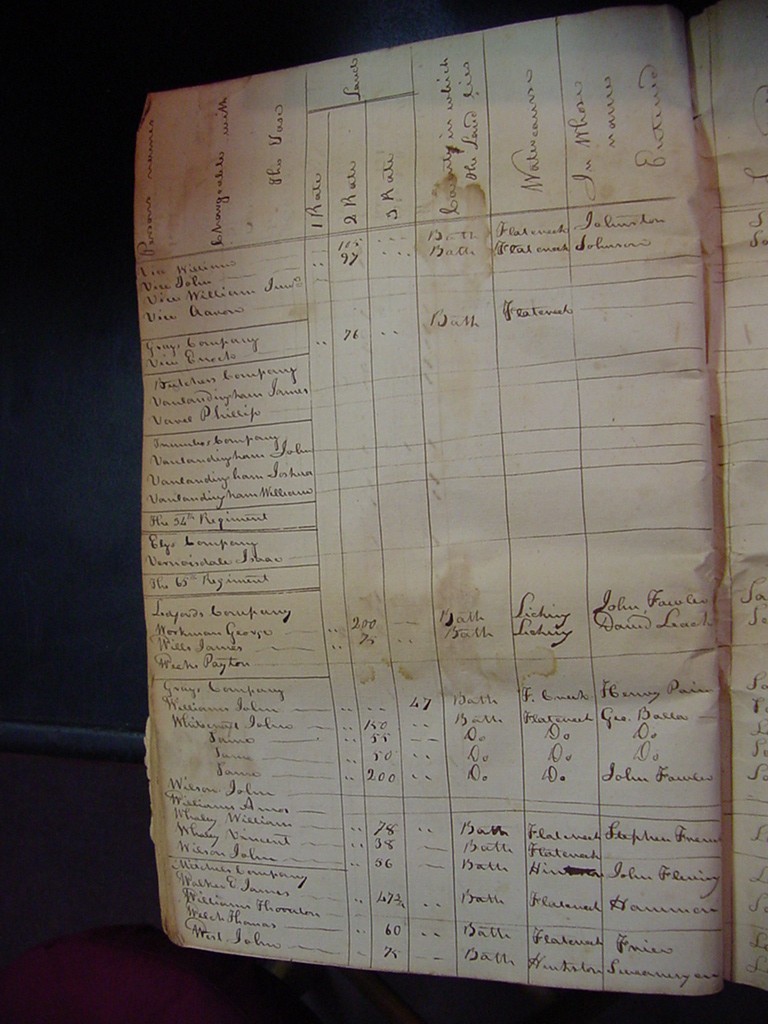 Persons names Chargeable with The Tax
Land
1 Rate
2 Rate
3 Rate
County in which the Land lies
Watercourse
In Whose names Entered
Via William 115 Bath Flatcreek Johnston
Vice John 97 Bath Flatcreek Johnson
Vice William Junr
Vice Aaron
Grays Company Bath Flatcreek
Vice Enock 76
Butchers Company
Vanlandingham James
Vanel Phillip
Company
Vanlandingham John
Vanlandingham Joshua
Vanlandingham William
The 34th Regiment
Elys Company
Vernoisdale Isaac
The 65th Regiment
Ledfords Company
Workman George 200 Bath Licking John Fowler
Wills James 75 Bath Licking David Leach
Weeks Payton
Grays Company
Williams John 47 Bath F. Creek Henry Pain
Whitecraft John 150 Bath Flatcreek Geo. Balla
Same 55 Do Do Do
Same 50 Do Do Do
Same 200 Do Do John Fowler
Wilson John
Williams Amos
Whaley William 78 Bath Flatcreek Stephen French
Whaley Vincent 38 Bath Flatcreek
Wilson John 56 Bath John Fleming
Mitchels Company
Walker E James 47 3/4 Bath Flatcreek Hammon
Williams Thornton
Welch Thomas 60 Bath Flatcreek
West John 75 Bath Hinkston